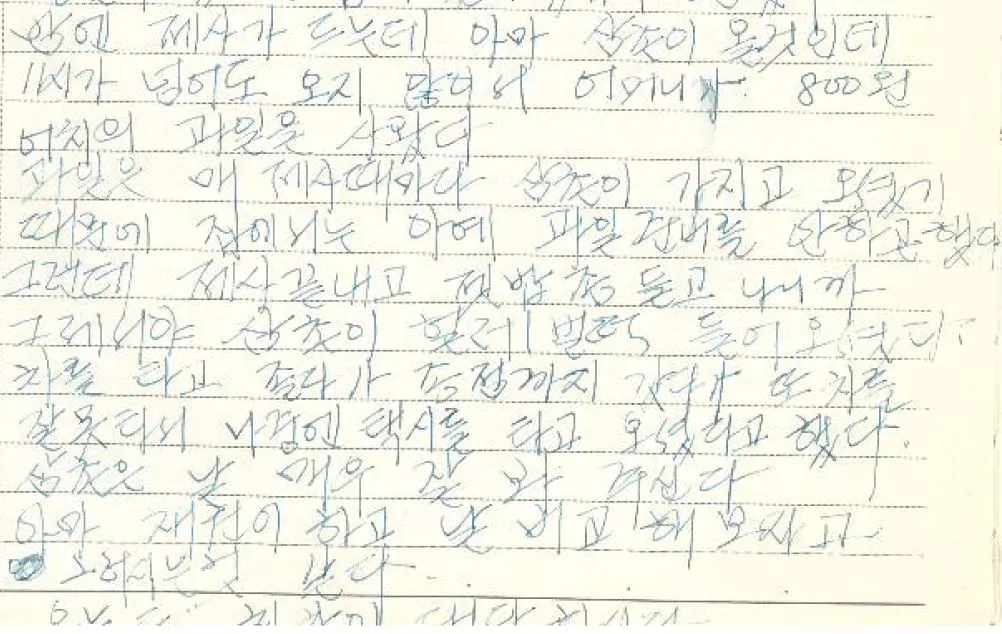 안엔 제사가 드는데 아마 삼촌이 올것인데
11시가 넘어도 오지 않아서 어머니가 800원
어치의 과일을 사왔다
과일은 매 제사때마다 삼촌이 가지고 오셨기
때문에 집에서는 아예 과일준비를 안하곤 했다
그런데 제사끝내고 젯밥을 들고 나니까
그제서야 삼촌이 헐레벌떡 들어오셨다.
차를 타고 졸다가 종점까지 갔다가 또 차를
잘못타서 나중엔 택시를 타고 오셨다고 했다.
삼촌은 날 매우 잘 봐 주신다
아마 재권이 하고 날 비교해 보시고
그러시는것 같다.